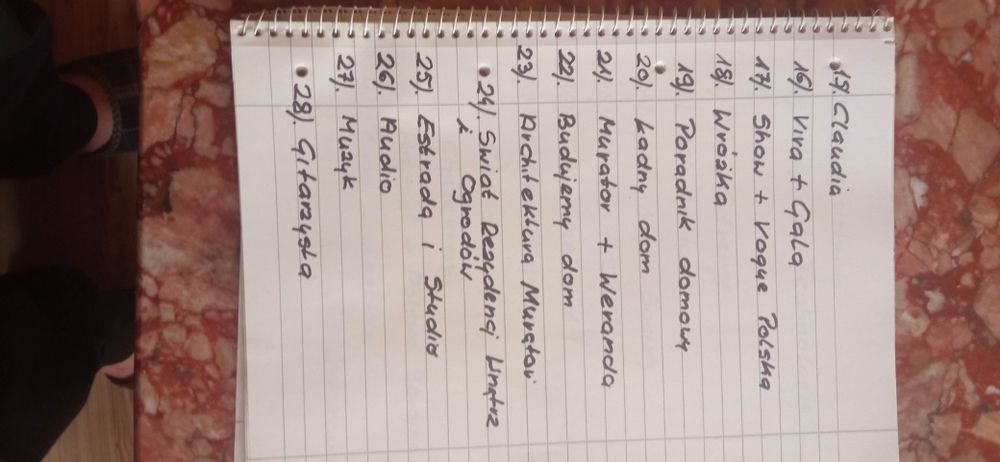 • 15). Claudia
16). Viva + Gala
17). Show + Vogue Polska
18). Wróżka
19). Poradnik domowy
• 20). Ładny dom
21). Murator + Weranda
22). Budujemy dom
23). Architektura Murator
• 24). Swiat Rezydencj Wnętrz
i Ogrodów
25). Estrada i Studio
26). Audio
27). Muzyk
• 28). Gitarzysta